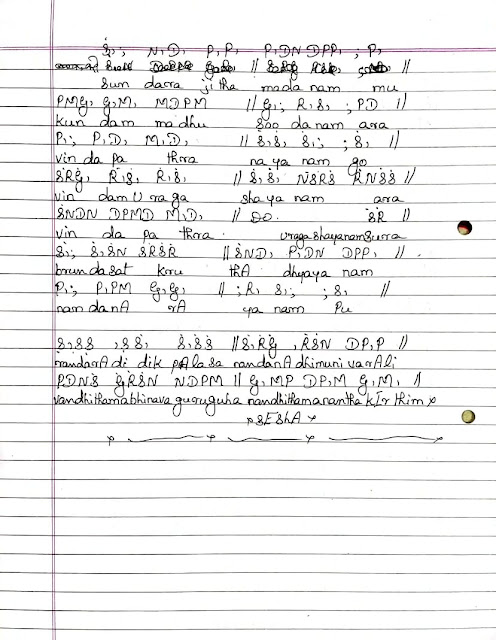 Ṡ,; N,D, P,P, P,DN DPP, ; P,
Sun dara ji tha mada nam mu
PMG, G,M, MDPM // G,; R,S, ; PD //
Kun dam ma dhu Soo da nam ara
P,; P,D, M,D, // Ṡ,Ṡ, Ṡ,; ; Ṡ, //
vin da pa thra na ya nam go
ṠṘĠ, Ṙ,Ṡ, Ṙ,Ṡ, // Ṡ,Ṡ, NṠṘṠ ṘNṠṠ //
vin dam U ra ga sha ya nam ara
ṠNDN DPMD M,D, // DO. ṠṘ //
vin da pa thra uragashayanam Surra
Ṡ,; Ṡ,ṠN ṠṘṠṘ // ṠND, P,DN DPP, //
brun dasat kru thA dhyaya nam
P,; P,PM G,G, // ; R, S,; ; S, //
nam danA rA ya nam Pu
S,SS ,SS, S,SS // S,RG ,RSN DP,P //
mandara di dik pAla sa nandanAdhimuni varAli
PDNS GRSN NDPM // G,MP DP,M G,M, //
vandhithamabhinava guruguha nandhithamanantha kIrthim
SEShA